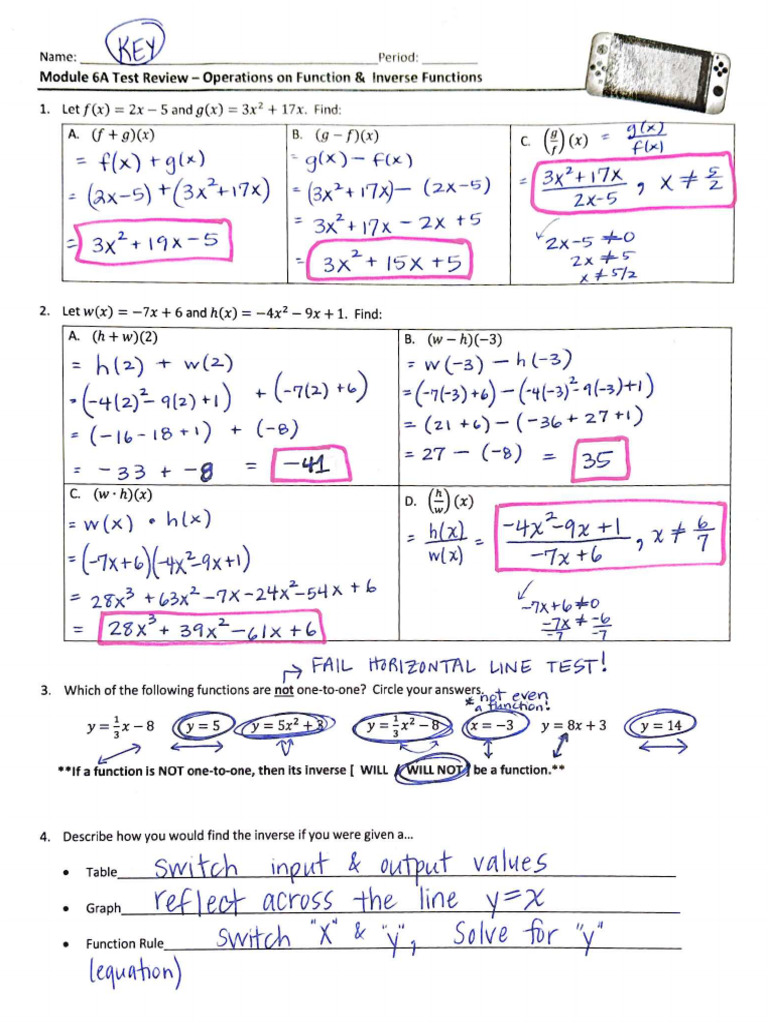 KEY
Name: ____ Period: ____
Module 6A Test Review – Operations on Function & Inverse Functions
1. Let f(x) = 2x − 5 and g(x) = 3x² + 17x. Find:
A. (f + g)(x)
= f(x) + g(x)
= (2x−5) + (3x²+17x)
= 3x² + 19x − 5
B. (g − f)(x)
= g(x) − f(x)
= (3x²+17x) − (2x−5)
= 3x² + 17x − 2x + 5
= 3x² + 15x + 5
C. (g/f)(x) = g(x)/f(x)
= (3x²+17x)/(2x−5), x ≠ 5/2
2x−5 ≠ 0
2x ≠ 5
x ≠ 5/2
2. Let w(x) = −7x + 6 and h(x) = −4x² − 9x + 1. Find:
A. (h + w)(2)
= h(2) + w(2)
= (−4(2)² − 9(2) + 1) + (−7(2) + 6)
= (−16 − 18 + 1) + (−8)
= −33 + −8 = −41
B. (w − h)(−3)
= w(−3) − h(−3)
= (−7(−3)+6) − (−4(−3)² − 9(−3) + 1)
= (21 + 6) − (−36 + 27 + 1)
= 27 − (−8) = 35
C. (w · h)(x)
= w(x) • h(x)
= (−7x+6)(−4x²−9x+1)
= 28x³ + 63x² − 7x − 24x² − 54x + 6
= 28x³ + 39x² − 61x + 6
D. (h/w)(x)
= h(x)/w(x) = (−4x² − 9x + 1)/(−7x + 6), x ≠ 6/7
−7x + 6 ≠ 0
−7x/−7 ≠ −6/−7
→ FAIL HORIZONTAL LINE TEST!
3. Which of the following functions are not one-to-one? Circle your answers.
* not even a function!
y = 1/3 x − 8 y = 5 y = 5x² + 3 y = 1/3 x² − 8 x = −3 y = 8x + 3 y = 14
**If a function is NOT one-to-one, then its inverse [ WILL / WILL NOT ] be a function.**
4. Describe how you would find the inverse if you were given a...
• Table switch input & output values
• Graph reflect across the line y=x
• Function Rule switch "x" & "y", Solve for "y"
(equation)